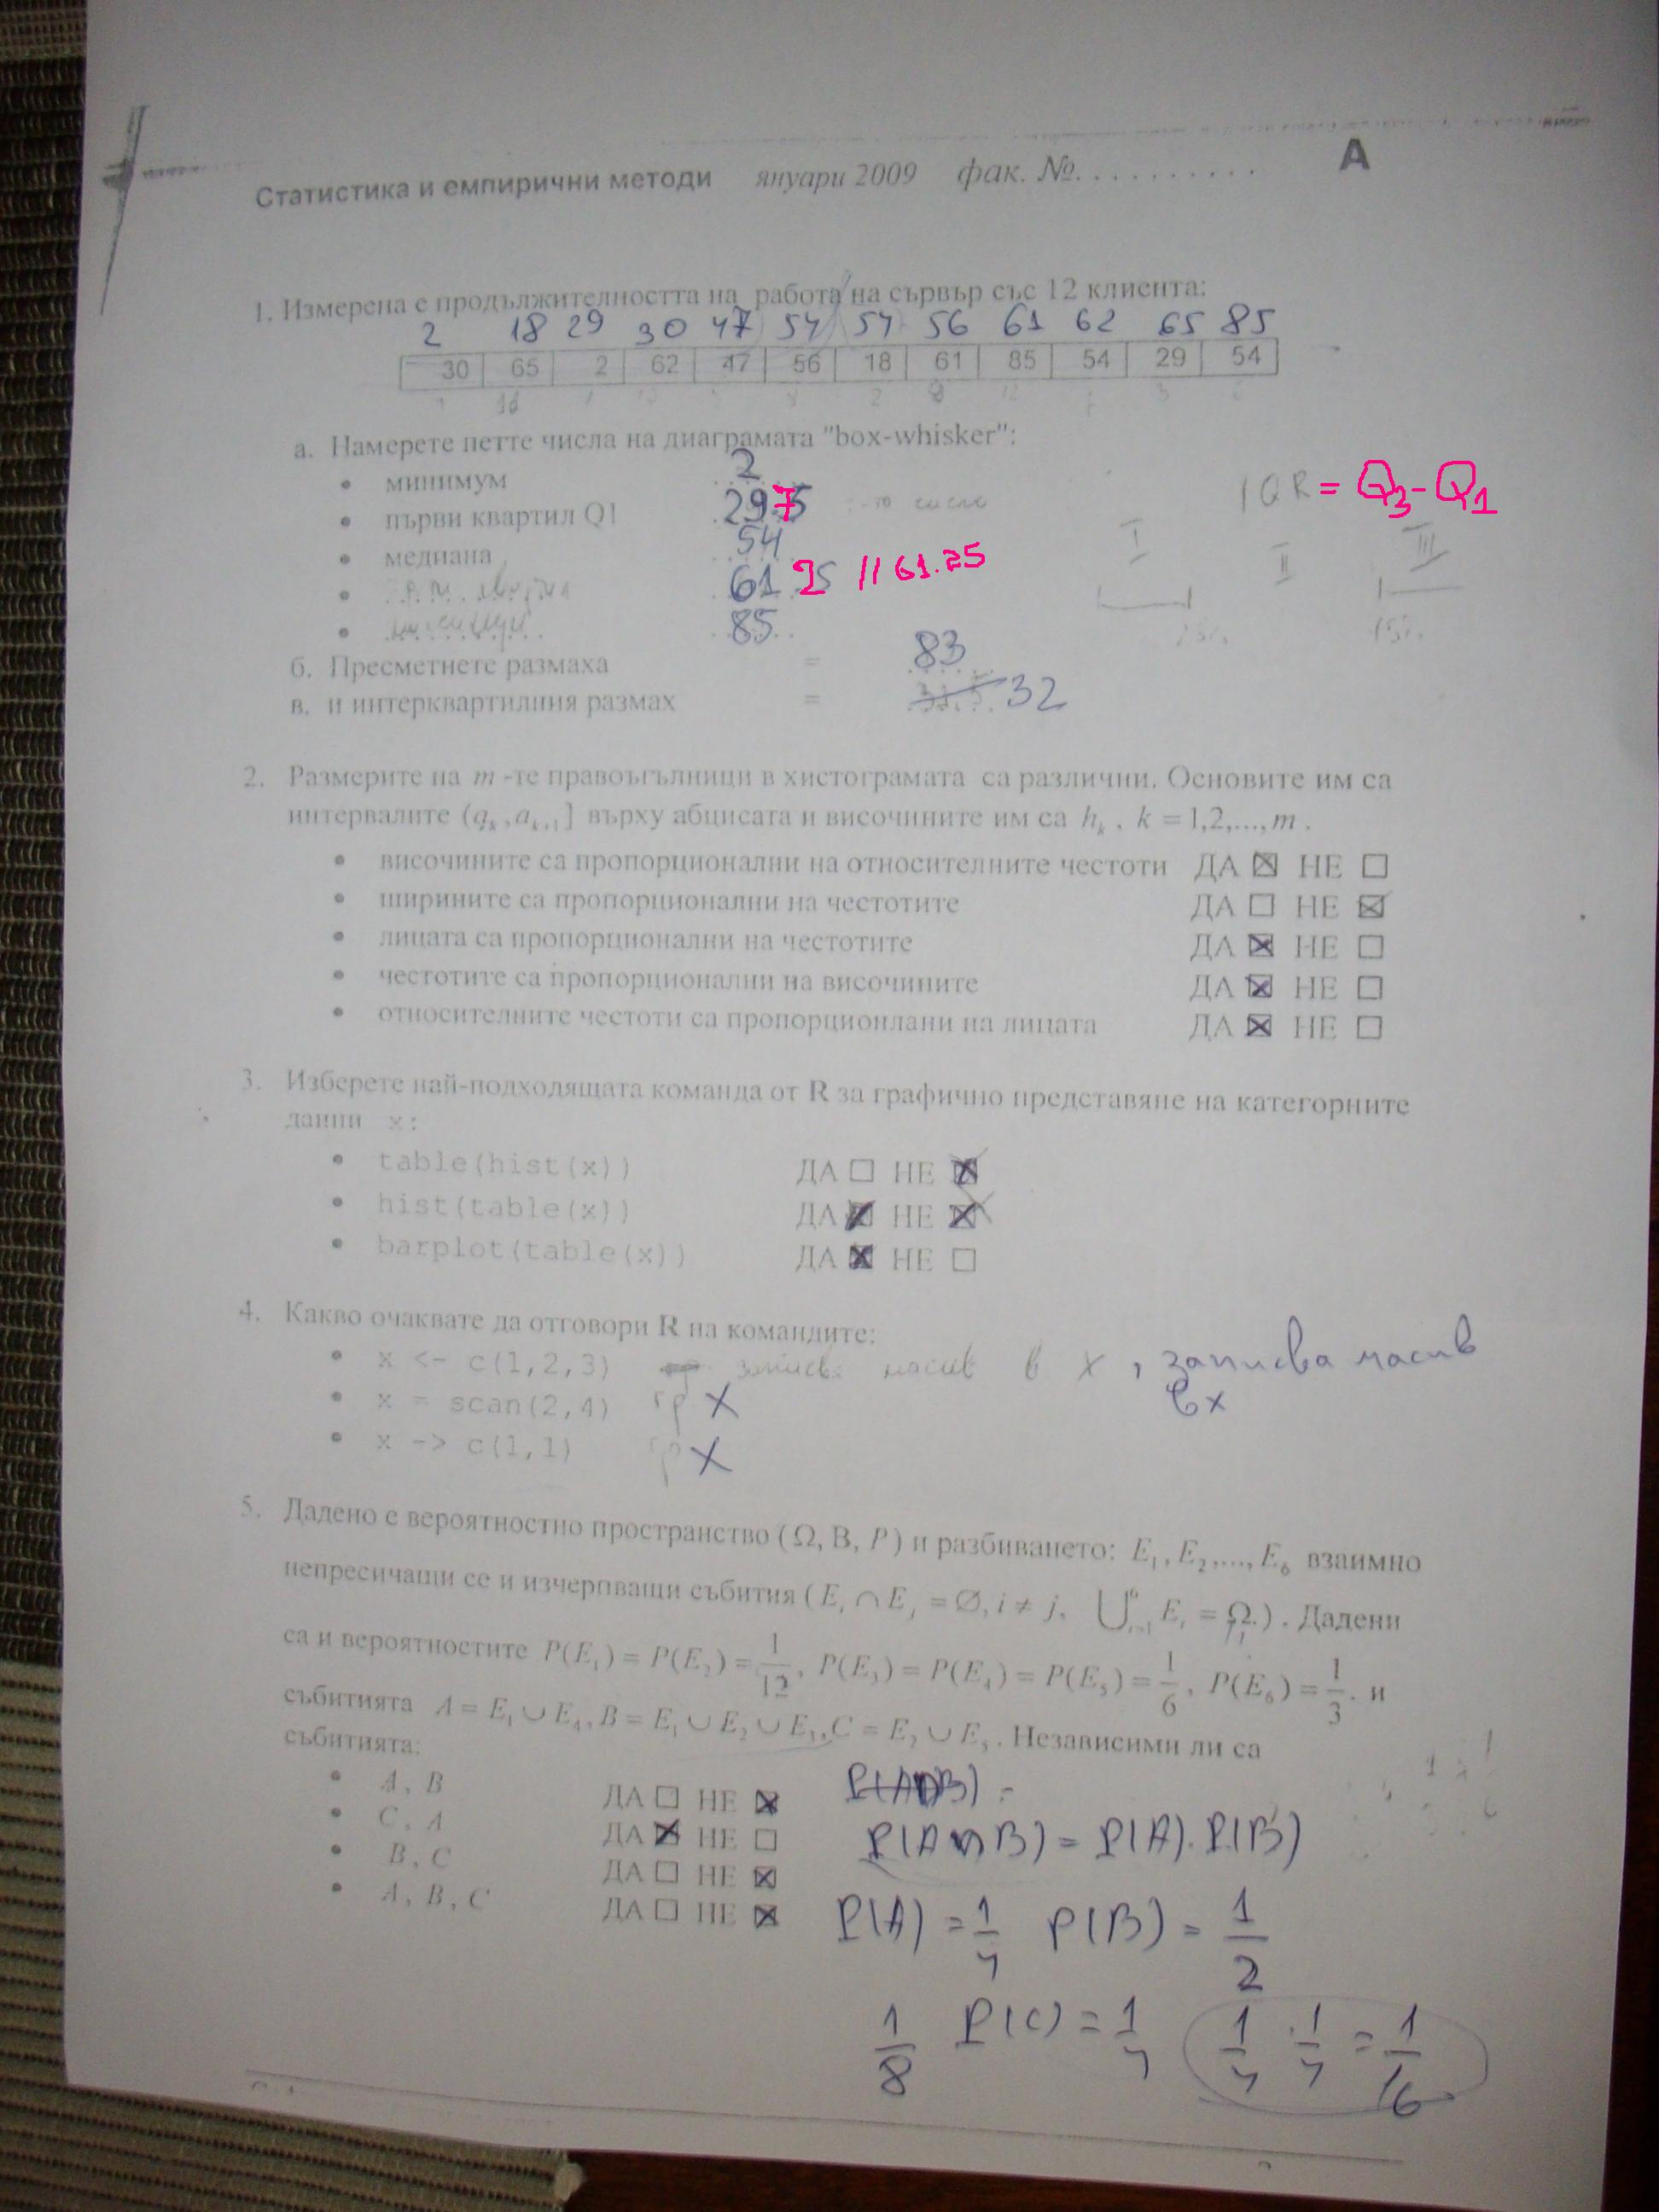 Статистика и емпирични методи януари 2009 фак. №. . . . . . . . . . . A
1. Измерена е продължителността на работа на сървър със 12 клиента:
2 18 29 30 47 54 54 56 61 62 65 85
30 65 2 62 47 56 18 61 85 54 29 54
а. Намерете петте числа на диаграмата "box-whisker":
• минимум 2
• първи квартил Q1 29.75
IQR = Q3 - Q1
• медиана 54
I II III
• 61.25 // 61.25
• 85
б. Пресметнете размаха = 83
в. и интерквартилния размах = 32
2. Размерите на m -те правоъгълници в хистограмата са различни. Основите им са
интервалите (a_k, a_{k+1}] върху абцисата и височините им са h_k, k = 1,2,...,m .
• височините са пропорционални на относителните честоти ДА ☒ НЕ ☐
• ширините са пропорционални на честотите ДА ☐ НЕ ☒
• лицата са пропорционални на честотите ДА ☒ НЕ ☐
• честотите са пропорционални на височините ДА ☒ НЕ ☐
• относителните честоти са пропорционлани на лицата ДА ☒ НЕ ☐
3. Изберете най-подходящата команда от R за графично представяне на категорните
данни x:
• table(hist(x)) ДА ☐ НЕ ☒
• hist(table(x)) ДА ☒ НЕ ☒
• barplot(table(x)) ДА ☒ НЕ ☐
4. Какво очаквате да отговори R на командите:
• x <- c(1,2,3) масив в x , записва масив
в x
• x = scan(2,4) X
• x -> c(1,1) X
5. Дадено е вероятностно пространство (Ω, B, P) и разбиването: E₁, E₂,...., E₆ взаимно
непресичащи се и изчерпващи събития (E_i ∩ E_j = ∅, i ≠ j, ⋃⁶_{i=1} E_i = Ω.) . Дадени
са и вероятностите P(E₁) = P(E₂) = 1/12, P(E₃) = P(E₄) = P(E₅) = 1/6, P(E₆) = 1/3. и
събитията A = E₁ ∪ E₄, B = E₁ ∪ E₂ ∪ E₃, C = E₂ ∪ E₅. Независими ли са
събитията:
• A, B ДА ☐ НЕ ☒
• C, A ДА ☒ НЕ ☐
• B, C ДА ☐ НЕ ☒
• A, B, C ДА ☐ НЕ ☒
P(A∩B) =
P(A∩B) = P(A). P(B)
P(A) = 1/4 P(B) = 1/2
1/8 P(C) = 1/4 1/4 . 1/4 = 1/16